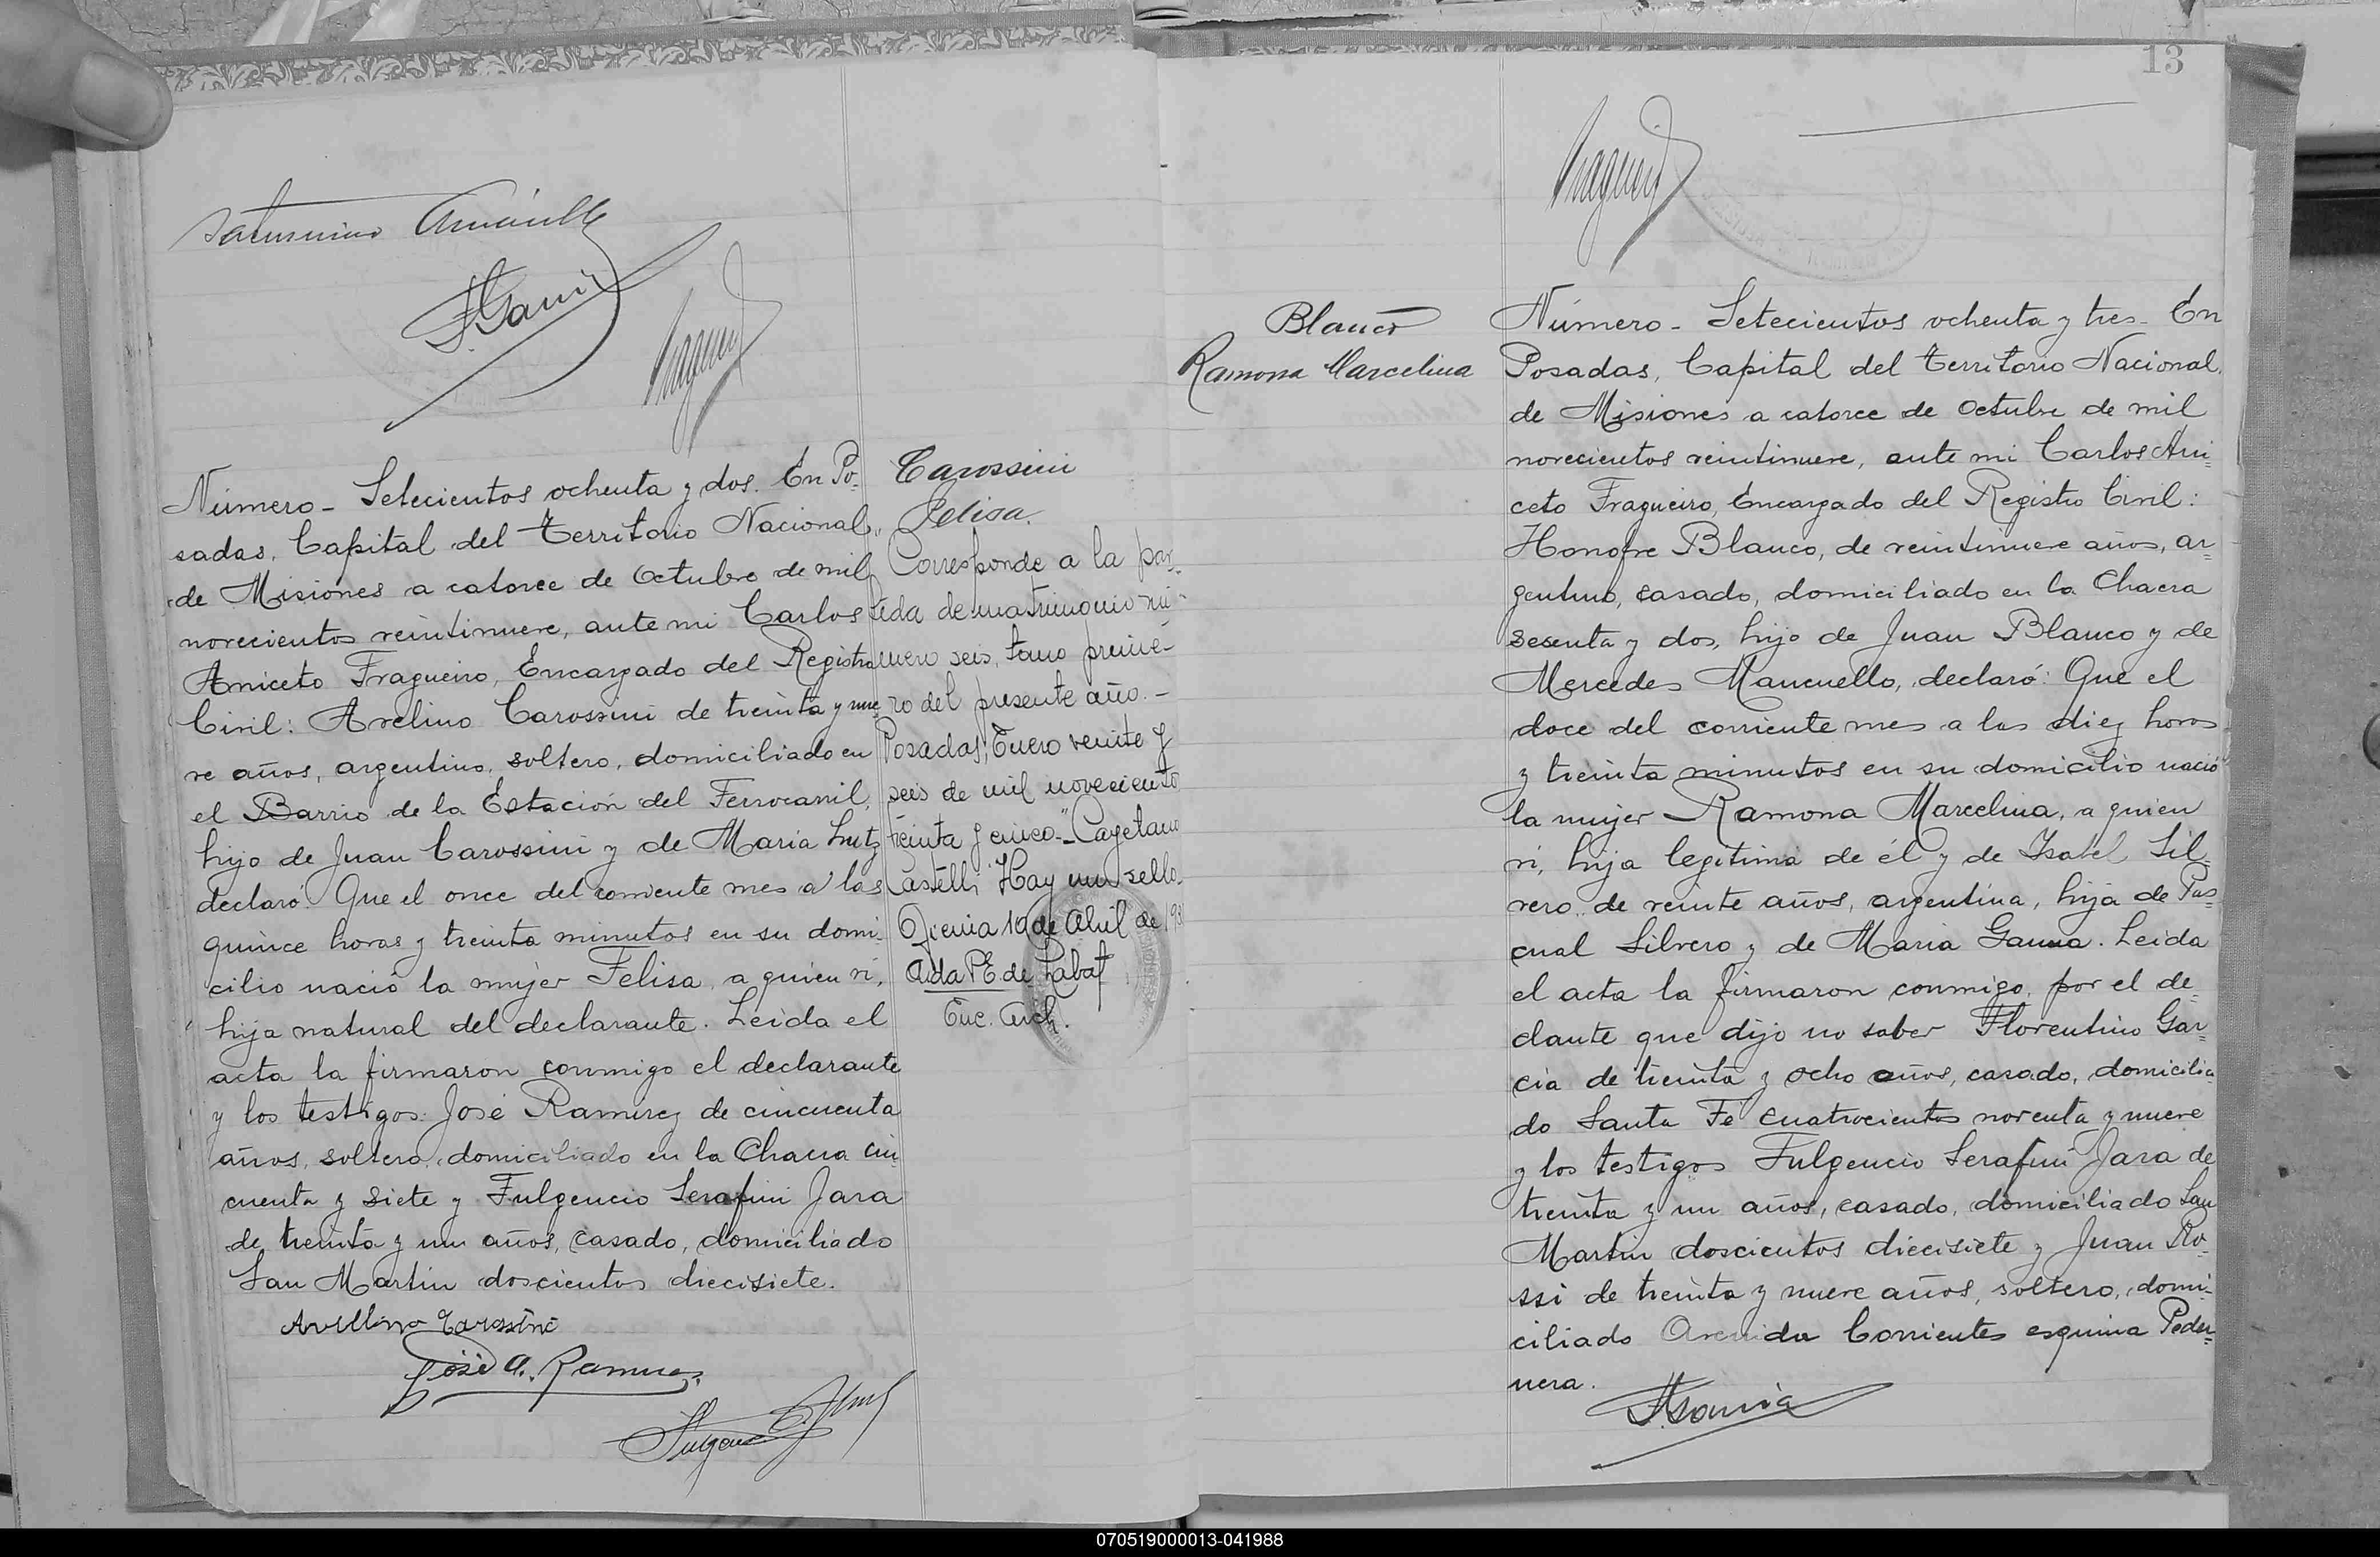 Saturnino
Número - Setecientos ochenta y dos. En Po-
sadas, Capital del Territorio Nacional
de Misiones a catorce de Octubre de mil
novecientos veintinueve, ante mi Carlos
Aniceto Fragueiro, Encargado del Registro
Civil: Avelino Carossini de treinta y nue-
ve años, argentino, soltero, domiciliado en
el Barrio de la Estación del Ferrocarril,
hijo de Juan Carossini y de María Lutz
declaró: Que el once del corriente mes a las
quince horas y treinta minutos en su domi-
cilio nació la mujer Felisa, a quien vi,
hija natural del declarante. Leida el
acta la firmaron conmigo el declarante
y los testigos: José Ramirez de cincuenta
años, soltero, domiciliado en la Chacra cin
cuenta y siete y Fulgencio Serafini Jara
de treinta y un años, casado, domiciliado
San Martin doscientos diecisiete.
Avellino Carossini
José A. Ramirez
Carossini
Felisa.
Corresponde a la par-
tida de matrimonio nú-
mero seis, tomo prime-
ro del presente año.-
Posadas, Enero veinte y
seis de mil novecientos
treinta y cinco.- "Cayetano
Castelli" Hay un sello.
Oficina 10 de Abril de 193
Aida P.E. de Labat
Enc. Arch.
13
Blanco
Ramona Marcelina
Número - Setecientos ochenta y tres - En
Posadas, Capital del Territorio Nacional
de Misiones a catorce de Octubre de mil
novecientos veintinueve, ante mi Carlos Ani-
ceto Fragueiro, Encargado del Registro Civil:
Honofre Blanco, de veintinueve años, ar-
gentino, casado, domiciliado en la Chacra
sesenta y dos, hijo de Juan Blanco y de
Mercedes Mancuello, declaró: Que el
doce del corriente mes a las diez horas
y treinta minutos en su domicilio nació
la mujer Ramona Marcelina, a quien
vi, hija legítima de él y de Isabel Sil-
vero de veinte años, argentina, hija de Pas-
cual Silvero y de María Gauna. Leida
el acta la firmaron conmigo, por el de-
clante que dijo no saber Florentino Gar-
cia de treinta y ocho años, casado, domicilia
do Santa Fé cuatrocientos noventa y nueve
y los testigos Fulgencio Serafini Jara de
treinta y un años, casado, domiciliado San
Martin doscientos diecisiete y Juan Ro-
ssi de treinta y nueve años, soltero, domi-
ciliado Avenida Corrientes esquina Peder-
nera.
070519000013-041988